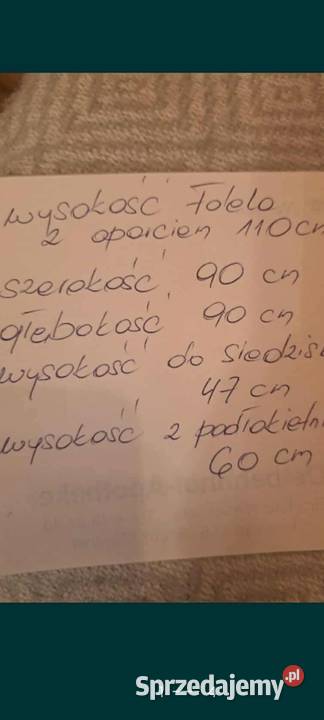 wysokość fotela
z oparciem 110cm
szerokość 90 cm
głębokość 90 cm
wysokość do siedzis
47 cm
wysokość z podłokietni
60 cm
Sprzedajemy.pl